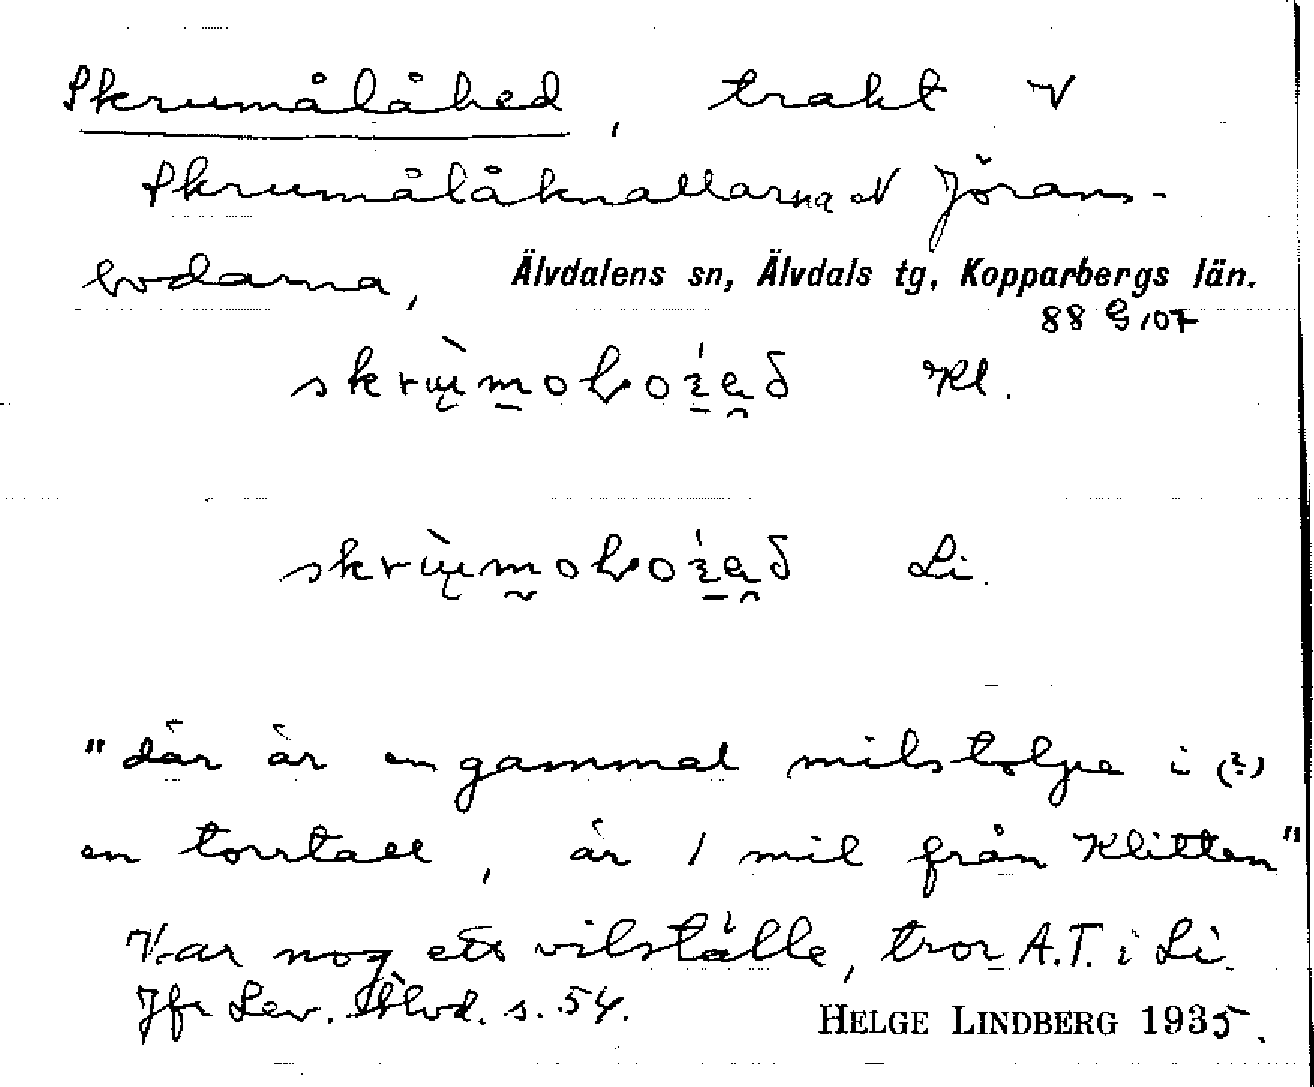 Skrumålåhed, trakt V
Skrumålåknallarna N Jörans-
bodarna, Älvdalens sn, Älvdals tg, Kopparbergs län.
88 G 107
Kl.
Li.
"där är en gammal milstolpe i (?)
en torrtall, är 1 mil från Klitten"
Var nog ett vilställe, tror A.T. i Li.
Jfr Lev. Älvd. s. 54.
HELGE LINDBERG 1935.